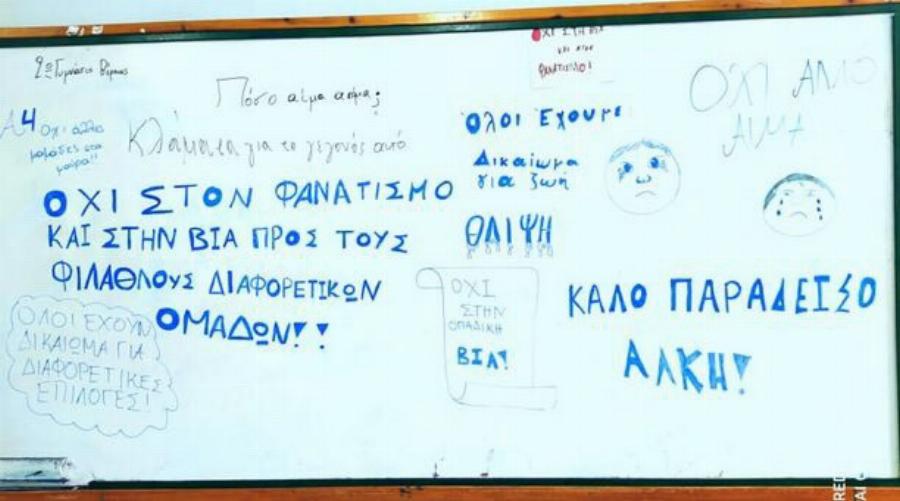 2ο Γυμνάσιο Θέρμης
Α4
Όχι άλλο
μανάδες στα
μαύρα!!
Πόσο αίμα ακόμα;
Κλάματα για το γεγονός αυτό
ΟΧΙ ΣΤΟΝ ΦΑΝΑΤΙΣΜΟ
ΚΑΙ ΣΤΗΝ ΒΙΑ ΠΡΟΣ ΤΟΥΣ
ΦΙΛΑΘΛΟΥΣ ΔΙΑΦΟΡΕΤΙΚΩΝ
ΟΜΑΔΩΝ!!
ΟΛΟΙ ΕΧΟΥΝ
ΔΙΚΑΙΩΜΑ ΓΙΑ
ΔΙΑΦΟΡΕΤΙΚΕΣ
ΕΠΙΛΟΓΕΣ!
ΟΧΙ ΣΤΗ ΒΙΑ
ΚΑΙ ΣΤΟΝ
ΦΑΝΑΤΙΣΜΟ!
Όλοι Έχουμε
Δικαίωμα
για ζωή
ΘΛΙΨΗ
ΟΧΙ
ΣΤΗΝ
ΟΠΑΔΙΚΗ
ΒΙΑ!
ΟΧΙ ΑΛΛΟ
ΑΙΜΑ
ΚΑΛΟ ΠΑΡΑΔΕΙΣΟ
ΑΛΚΗ!